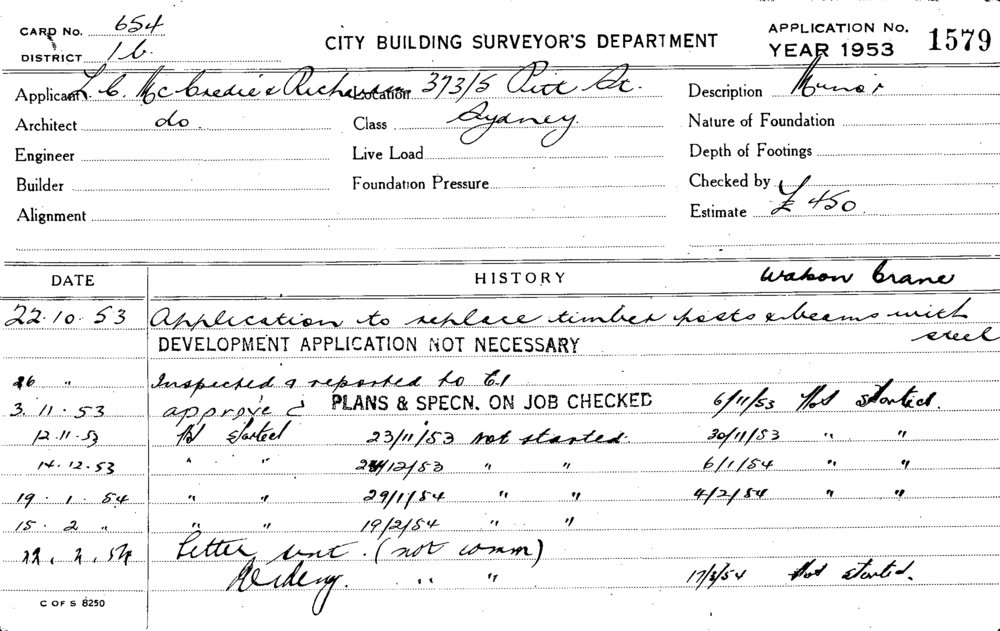 CARD No. 654
DISTRICT 16.
CITY BUILDING SURVEYOR'S DEPARTMENT
APPLICATION No.
YEAR 1953
1579
Applicant L. C. McCredie & Richardson Location 373/5 Pitt St. Description Minor
Architect do. Class Sydney. Nature of Foundation
Engineer Live Load Depth of Footings
Builder Foundation Pressure Checked by
Alignment Estimate £450
DATE HISTORY Watson Crane
22.10.53 Application to replace timber posts & beams with
steel
DEVELOPMENT APPLICATION NOT NECESSARY
26 " Inspected & reported to C.I
3.11.53 approved PLANS & SPECN. ON JOB CHECKED 6/11/53 Not started.
12.11.53 Not started 23/11/53 not started. 30/11/53 " "
14.12.53 " " 24/12/53 " " 6/1/54 " "
19.1.54 " " 29/1/54 " " 4/2/54 " "
15.2 " " " 19/2/54 " "
22.2.54 Letter sent. (not comm)
" " 17/3/54 Not started.
C OF S 8250